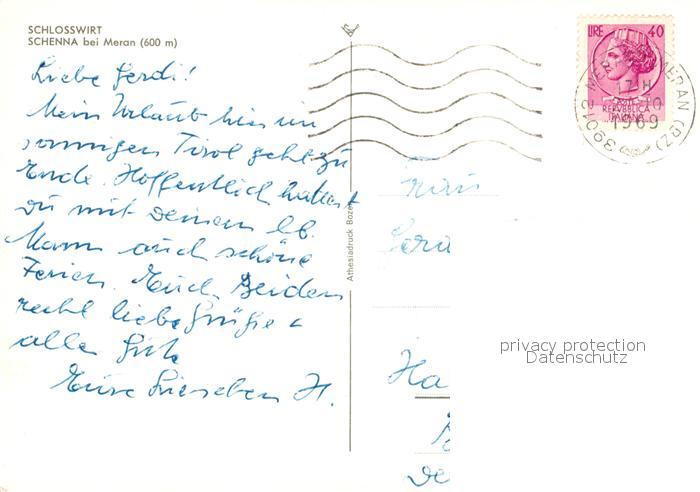 SCHLOSSWIRT
SCHENNA bei Meran (600 m)
Liebe Gerdi!
Mein Urlaub hier im
sonnigen Tirol geht zu
Ende. Hoffentlich hattest
du mit Deinem lb.
Mann auch schöne
Ferien. Euch Beiden
recht liebe Grüße u
alles Gute
Eure H.
Athesiadruck Bozen
LIRE 40
REPVBBLICA
ITALIANA
39012 MERANO MERAN (BZ)
1969
Frau
Gerd
Ha
privacy protection
Datenschutz